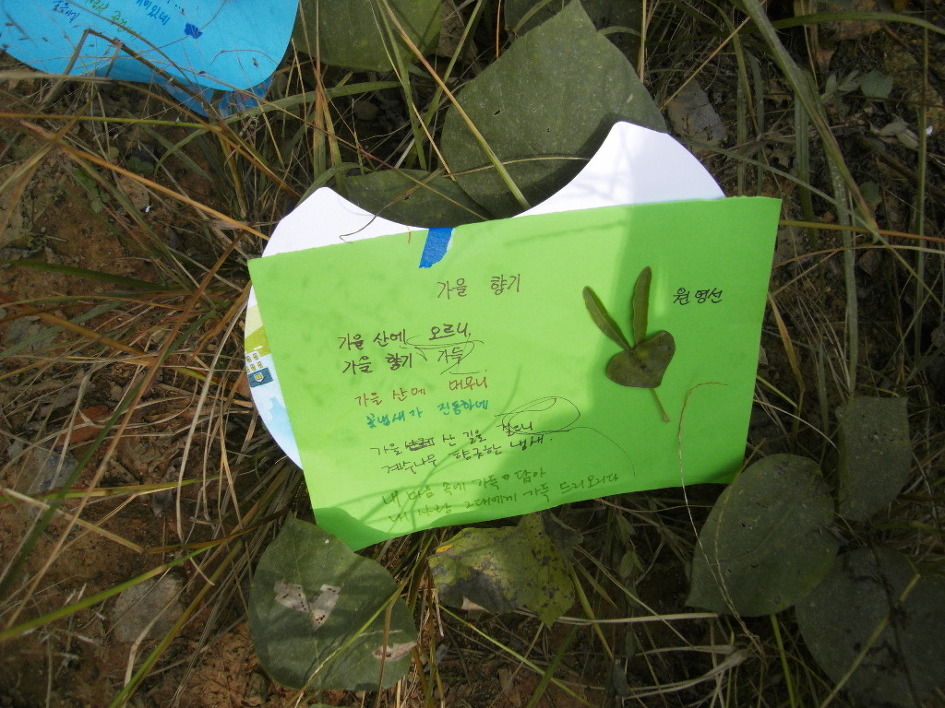 가을 향기
원영선
가을 산에 오르니,
가을 향기 가득
가을 산에 머무니
꽃냄새가 진동하네
가을 산 길을 걸으니
계수나무 향긋한 냄새.
내 마음 속에 가득 담아
내 사랑 그대에게 가득 드리오리다